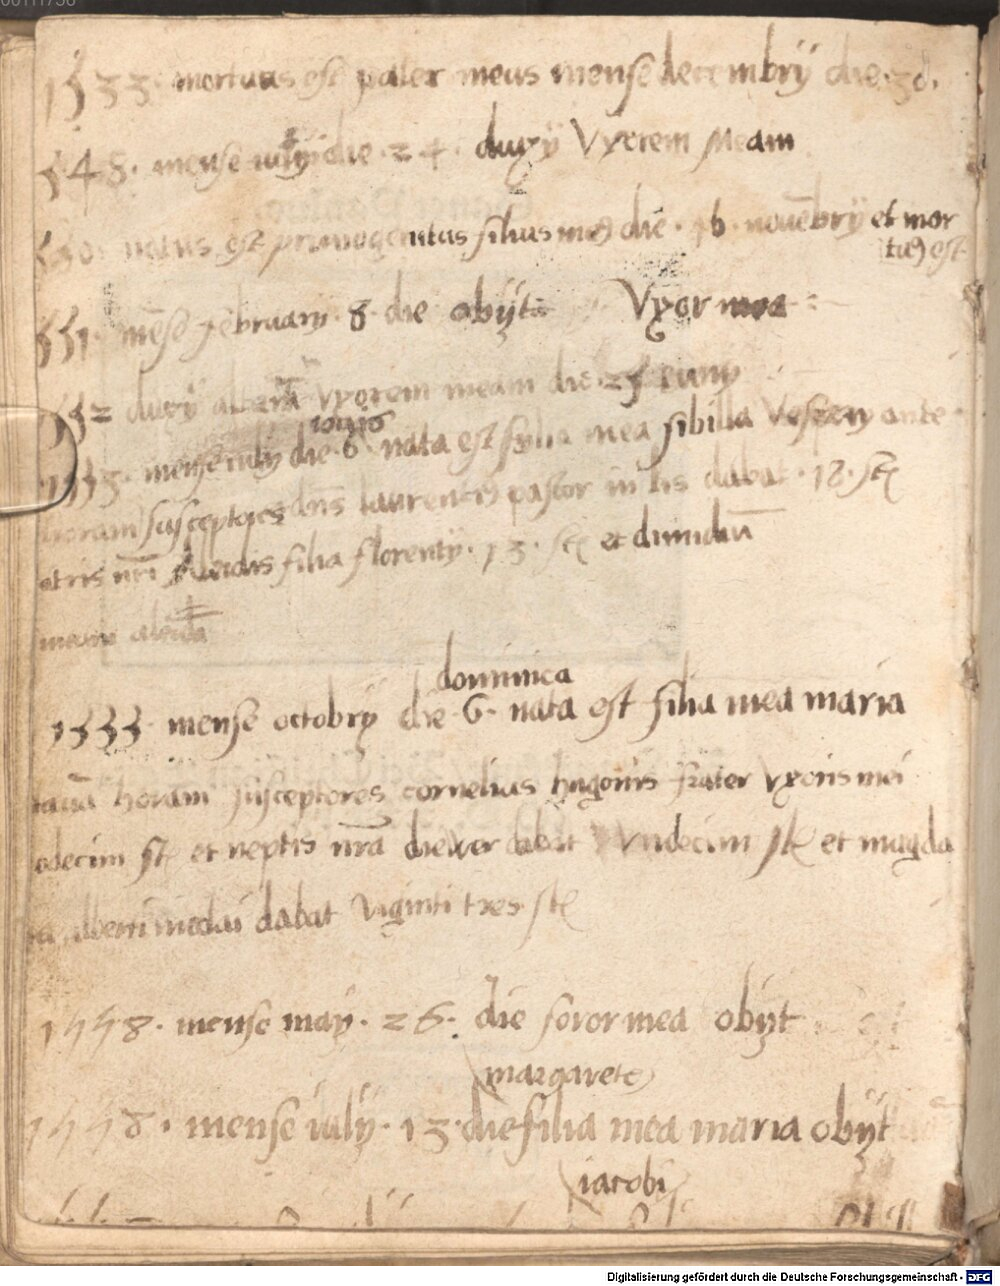 00111736
1533 · mortuus est pater meus mense decembrÿ die · 30 ·
548 · mense iulÿ die · 24 · duxÿ Vxorem Meam
550 · natus est primogenitus filius die · 16 · novēbrÿ et mor
tu9 est
551 · mēse februarÿ · 8 · die obÿt Vxor mea
552 duxÿ alterā vxorem meam die · 25 iunÿ
iovis
1553 · mense iulÿ die · 6 · nata est fylia mea sibilla Vesperÿ ante
horam susceptores dns laurenti9 pastor in lis dabat · 18 · st
nri filia florentÿ · 13 · st et dimidiū
meam aleida
dominica
1555 · mense octobrÿ die · 6 · nata est filia mea maria
horam susceptores cornelius hugonis frater vxoris mei
odecim st et neptis nrā diewer dabat Vndecim st et magda
dabat viginti tres st
1558 · mense maÿ · 26 · die soror mea obÿt
margarete
1558 · mense iulÿ · 13 · die filia mea maria obÿt
iacobi
Digitalisierung gefördert durch die Deutsche Forschungsgemeinschaft - DFG